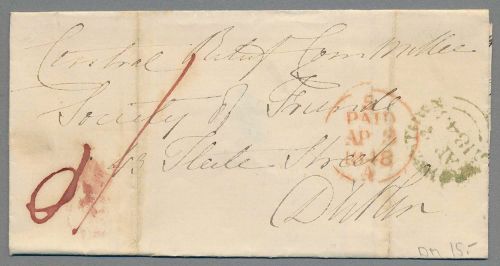 Central Relief Committee
Society of Friends
43 Fleet Street
Dublin
PAID
AP 2
1848
DM 15.-